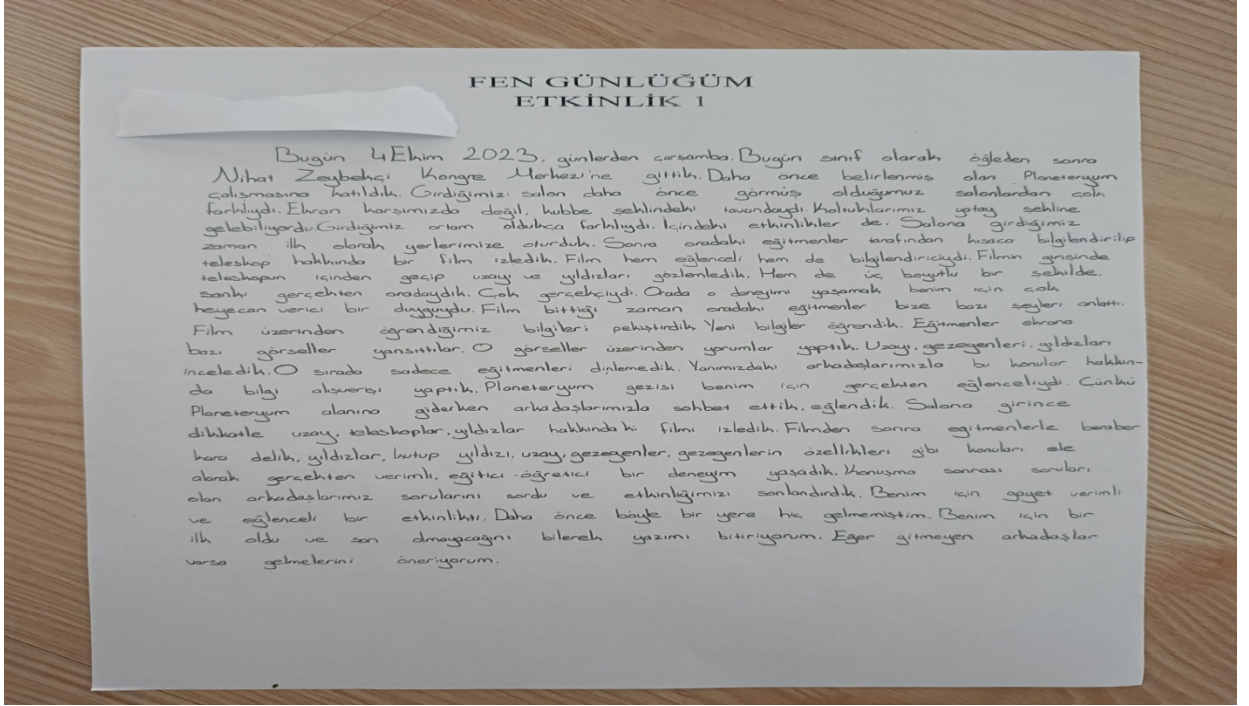 FEN GÜNLÜĞÜM
ETKİNLİK 1
Bugün 4 Ekim 2023, günlerden çarşamba. Bugün sınıf olarak öğleden sonra
Nihat Zeybekçi Kongre Merkezi'ne gittik. Daha önce belirlenmiş olan Planeteryum
çalışmasına katıldık. Girdiğimizi salon daha önce görmüş olduğumuz salonlardan çok
farklıydı. Ekran karşımızda değil, kubbe şeklindeki tavandaydı. Koltuklarımız yatay şekline
gelebiliyordu. Girdiğimiz ortam oldukça farklıydı. İçindeki etkinlikler de. Salona girdiğimiz
zaman ilk olarak yerlerimize oturduk. Sonra oradaki eğitmenler tarafından kısaca bilgilendirilip
teleskop hakkında bir film izledik. Film hem eğlenceli hem de bilgilendiriciydi. Filmin girişinde
teleskopun içinden geçip uzayı ve yıldızları gözlemledik. Hem de üç boyutlu bir şekilde.
sanki gerçekten oradaydık. Çok gerçekçiydi. Orada o deneyimi yaşamak benim için çok
heyecan verici bir duyguydu. Film bittiği zaman oradaki eğitmenler bize bazı şeyleri anlattı.
Film üzerinden öğrendiğimiz bilgileri pekiştirdik. Yeni bilgiler öğrendik. Eğitmenler ekrana
bazı görseller yansıttılar. O görseller üzerinden yorumlar yaptık. Uzayı, gezegenleri, yıldızları
inceledik. O sırada sadece eğitmenleri dinlemedik. Yanımızdaki arkadaşlarımızla bu konular hakkın-
da bilgi alışverişi yaptık. Planeteryum gezisi benim için gerçekten eğlenceliydi. Çünkü
Planeteryum alanına giderken arkadaşlarımızla sohbet ettik, eğlendik. Salona girince
dikkatle uzay, teleskoplar, yıldızlar hakkındaki filmi izledik. Filmden sonra egitmenlerle beraber
kara delik, yıldızlar, kutup yıldızı, uzay, gezegenler, gezegenlerin özellikleri gibi konuları ele
alarak gerçekten verimli, eğitici-öğretici bir deneyim yaşadık. Konuşma sonrası soruları
olan arkadaşlarımız sorularını sordu ve etkinliğimizi sonlandırdık. Benim için gayet verimli
ve eğlenceli bir etkinlikti. Daha önce böyle bir yere hiç gelmemiştim. Benim için bir
ilk oldu ve son olmayacağını bilerek yazımı bitiriyorum. Eğer gitmeyen arkadaşlar
varsa gelmelerini öneriyorum.